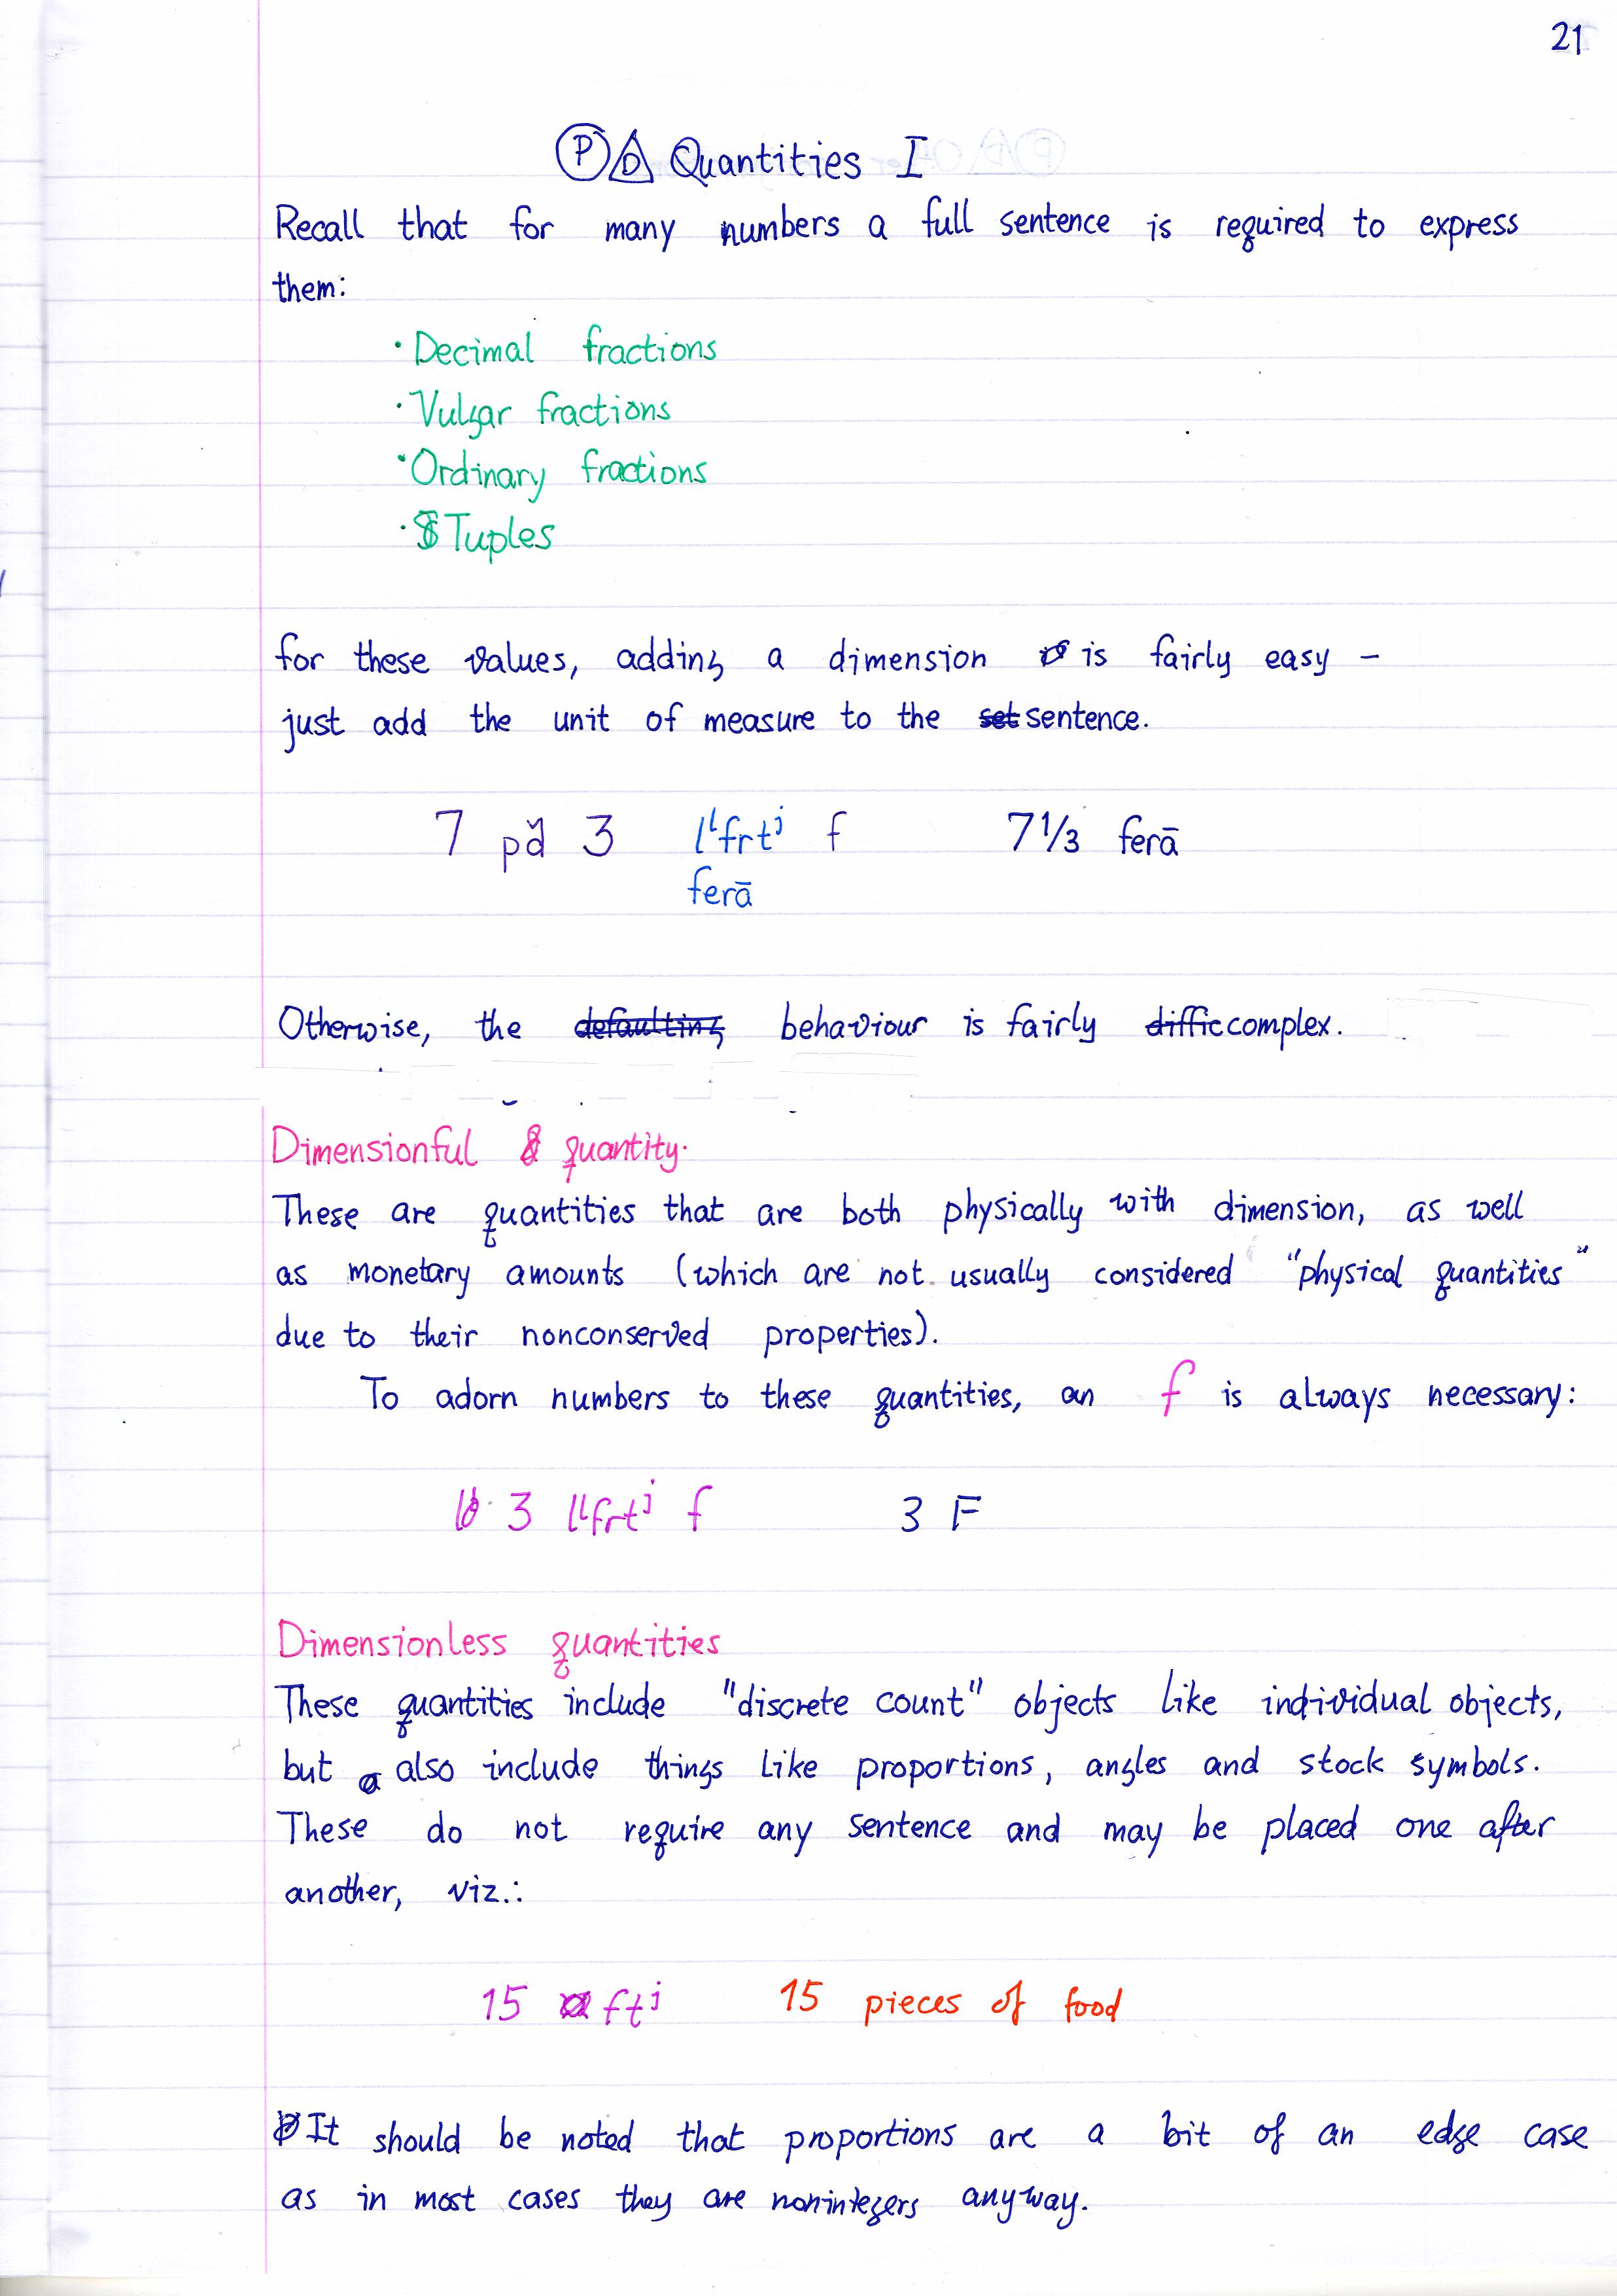 21
P D Quantities I
Recall that for many numbers a full sentence is required to express
them:
· Decimal fractions
· Vulgar fractions
· Ordinary fractions
· Tuples
for these values, adding a dimension is fairly easy –
just add the unit of measure to the set sentence.
7 pǎ 3 lᶫfrtʲ f 7⅓ ferā
ferā
Otherwise, the defaulting behaviour is fairly diffic complex.
Dimensionful quantity.
These are quantities that are both physically with dimension, as well
as monetary amounts (which are not usually considered "physical quantities"
due to their nonconserved properties).
To adorn numbers to these quantities, an f is always necessary:
3 lᶫfrtʲ f 3 F
Dimensionless quantities
These quantities include "discrete count" objects like individual objects,
but also include things like proportions, angles and stock symbols.
These do not require any sentence and may be placed one after
another, viz.:
15 ftʲ 15 pieces of food
It should be noted that proportions are a bit of an edge case
as in most cases they are nonintegers anyway.